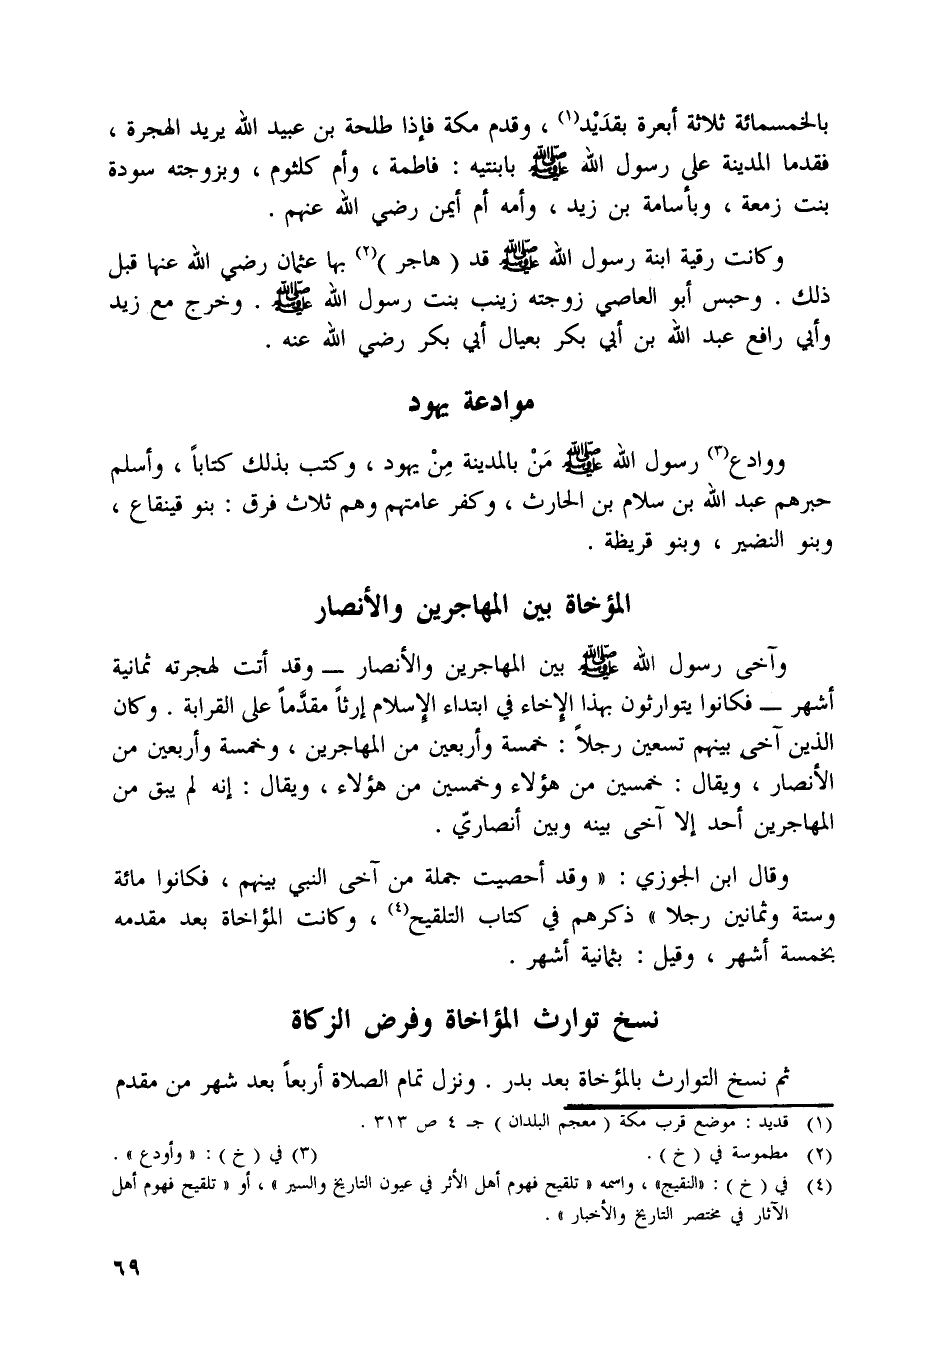 بالخمسمائة ثلاثة أبعرة بقدَيْد(١) ، وقدم مكة فإذا طلحة بن عبيد الله يريد الهجرة ،
فقدما المدينة على رسول الله ﷺ بابنتيه : فاطمة ، وأم كلثوم ، وبزوجته سودة
بنت زمعة ، وبأسامة بن زيد ، وأمه أم أيمن رضي الله عنهم .
وكانت رقية ابنة رسول الله ﷺ قد ( هاجر )(٢) بها عثمان رضي الله عنها قبل
ذلك . وحبس أبو العاصي زوجته زينب بنت رسول الله ﷺ . وخرج مع زيد
وأبي رافع عبد الله بن أبي بكر بعيال أبي بكر رضي الله عنه .
موادعة يهود
ووادع(٣) رسول الله ﷺ مَنْ بالمدينة مِنْ يهود ، وكتب بذلك كتاباً ، وأسلم
حبرهم عبد الله بن سلام بن الحارث ، وكفر عامتهم وهم ثلاث فرق : بنو قينقاع ،
وبنو النضير ، وبنو قريظة .
المؤخاة بين المهاجرين والأنصار
وآخى رسول الله ﷺ بين المهاجرين والأنصار ــ وقد أتت لهجرته ثمانية
أشهر ــ فكانوا يتوارثون بهذا الإخاء في ابتداء الإسلام إرثاً مقدَّماً على القرابة . وكان
الذين آخى بينهم تسعين رجلاً : خمسة وأربعين من المهاجرين ، وخمسة وأربعين من
الأنصار ، ويقال : خمسين من هؤلاء وخمسين من هؤلاء ، ويقال : إنه لم يبق من
المهاجرين أحد إلا آخى بينه وبين أنصاريّ .
وقال ابن الجوزي : « وقد أحصيت جملة من آخى النبي بينهم ، فكانوا مائة
وستة وثمانين رجلا » ذكرهم في كتاب التلقيح(٤) ، وكانت المؤاخاة بعد مقدمه
بخمسة أشهر ، وقيل : بثمانية أشهر .
نسخ توارث المؤاخاة وفرض الزكاة
ثم نسخ التوارث بالمؤخاة بعد بدر . ونزل تمام الصلاة أربعاً بعد شهر من مقدم
(١) قديد : موضع قرب مكة ( معجم البلدان ) جـ ٤ ص ٣١٣ .
(٢) مطموسة في ( خ ) . (٣) في ( خ ) : « وأودع » .
(٤) في ( خ ) : «النقيج» ، واسمه « تلقيح فهوم أهل الأثر في عيون التاريخ والسير » ، أو « تلقيح فهوم أهل
الآثار في مختصر التاريخ والأخبار » .
٦٩